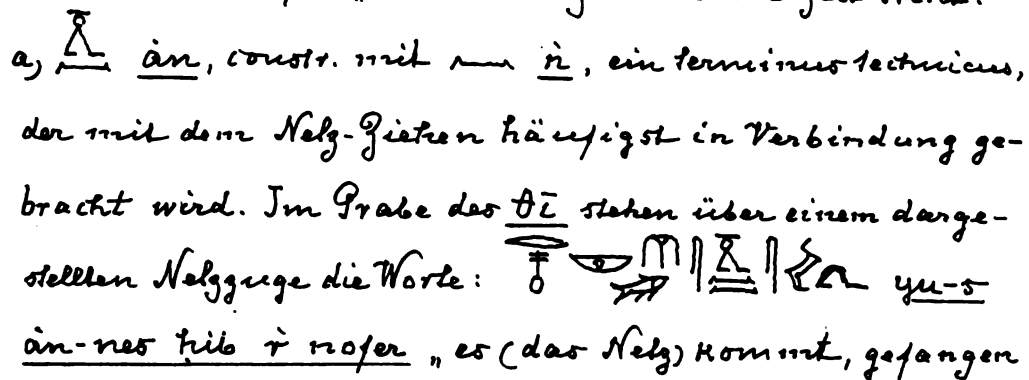 a, ȧn, constr. mit 𓈖 ṅ, ein terminus technicus,
der mit dem Netz-Ziehen häufigst in Verbindung ge-
bracht wird. Im Grabe des θī stehen über einem darge-
stellten Netzzuge die Worte: yu-s
ȧn-nes ḥib ṙ nofer „es (das Netz) kommt, gefangen